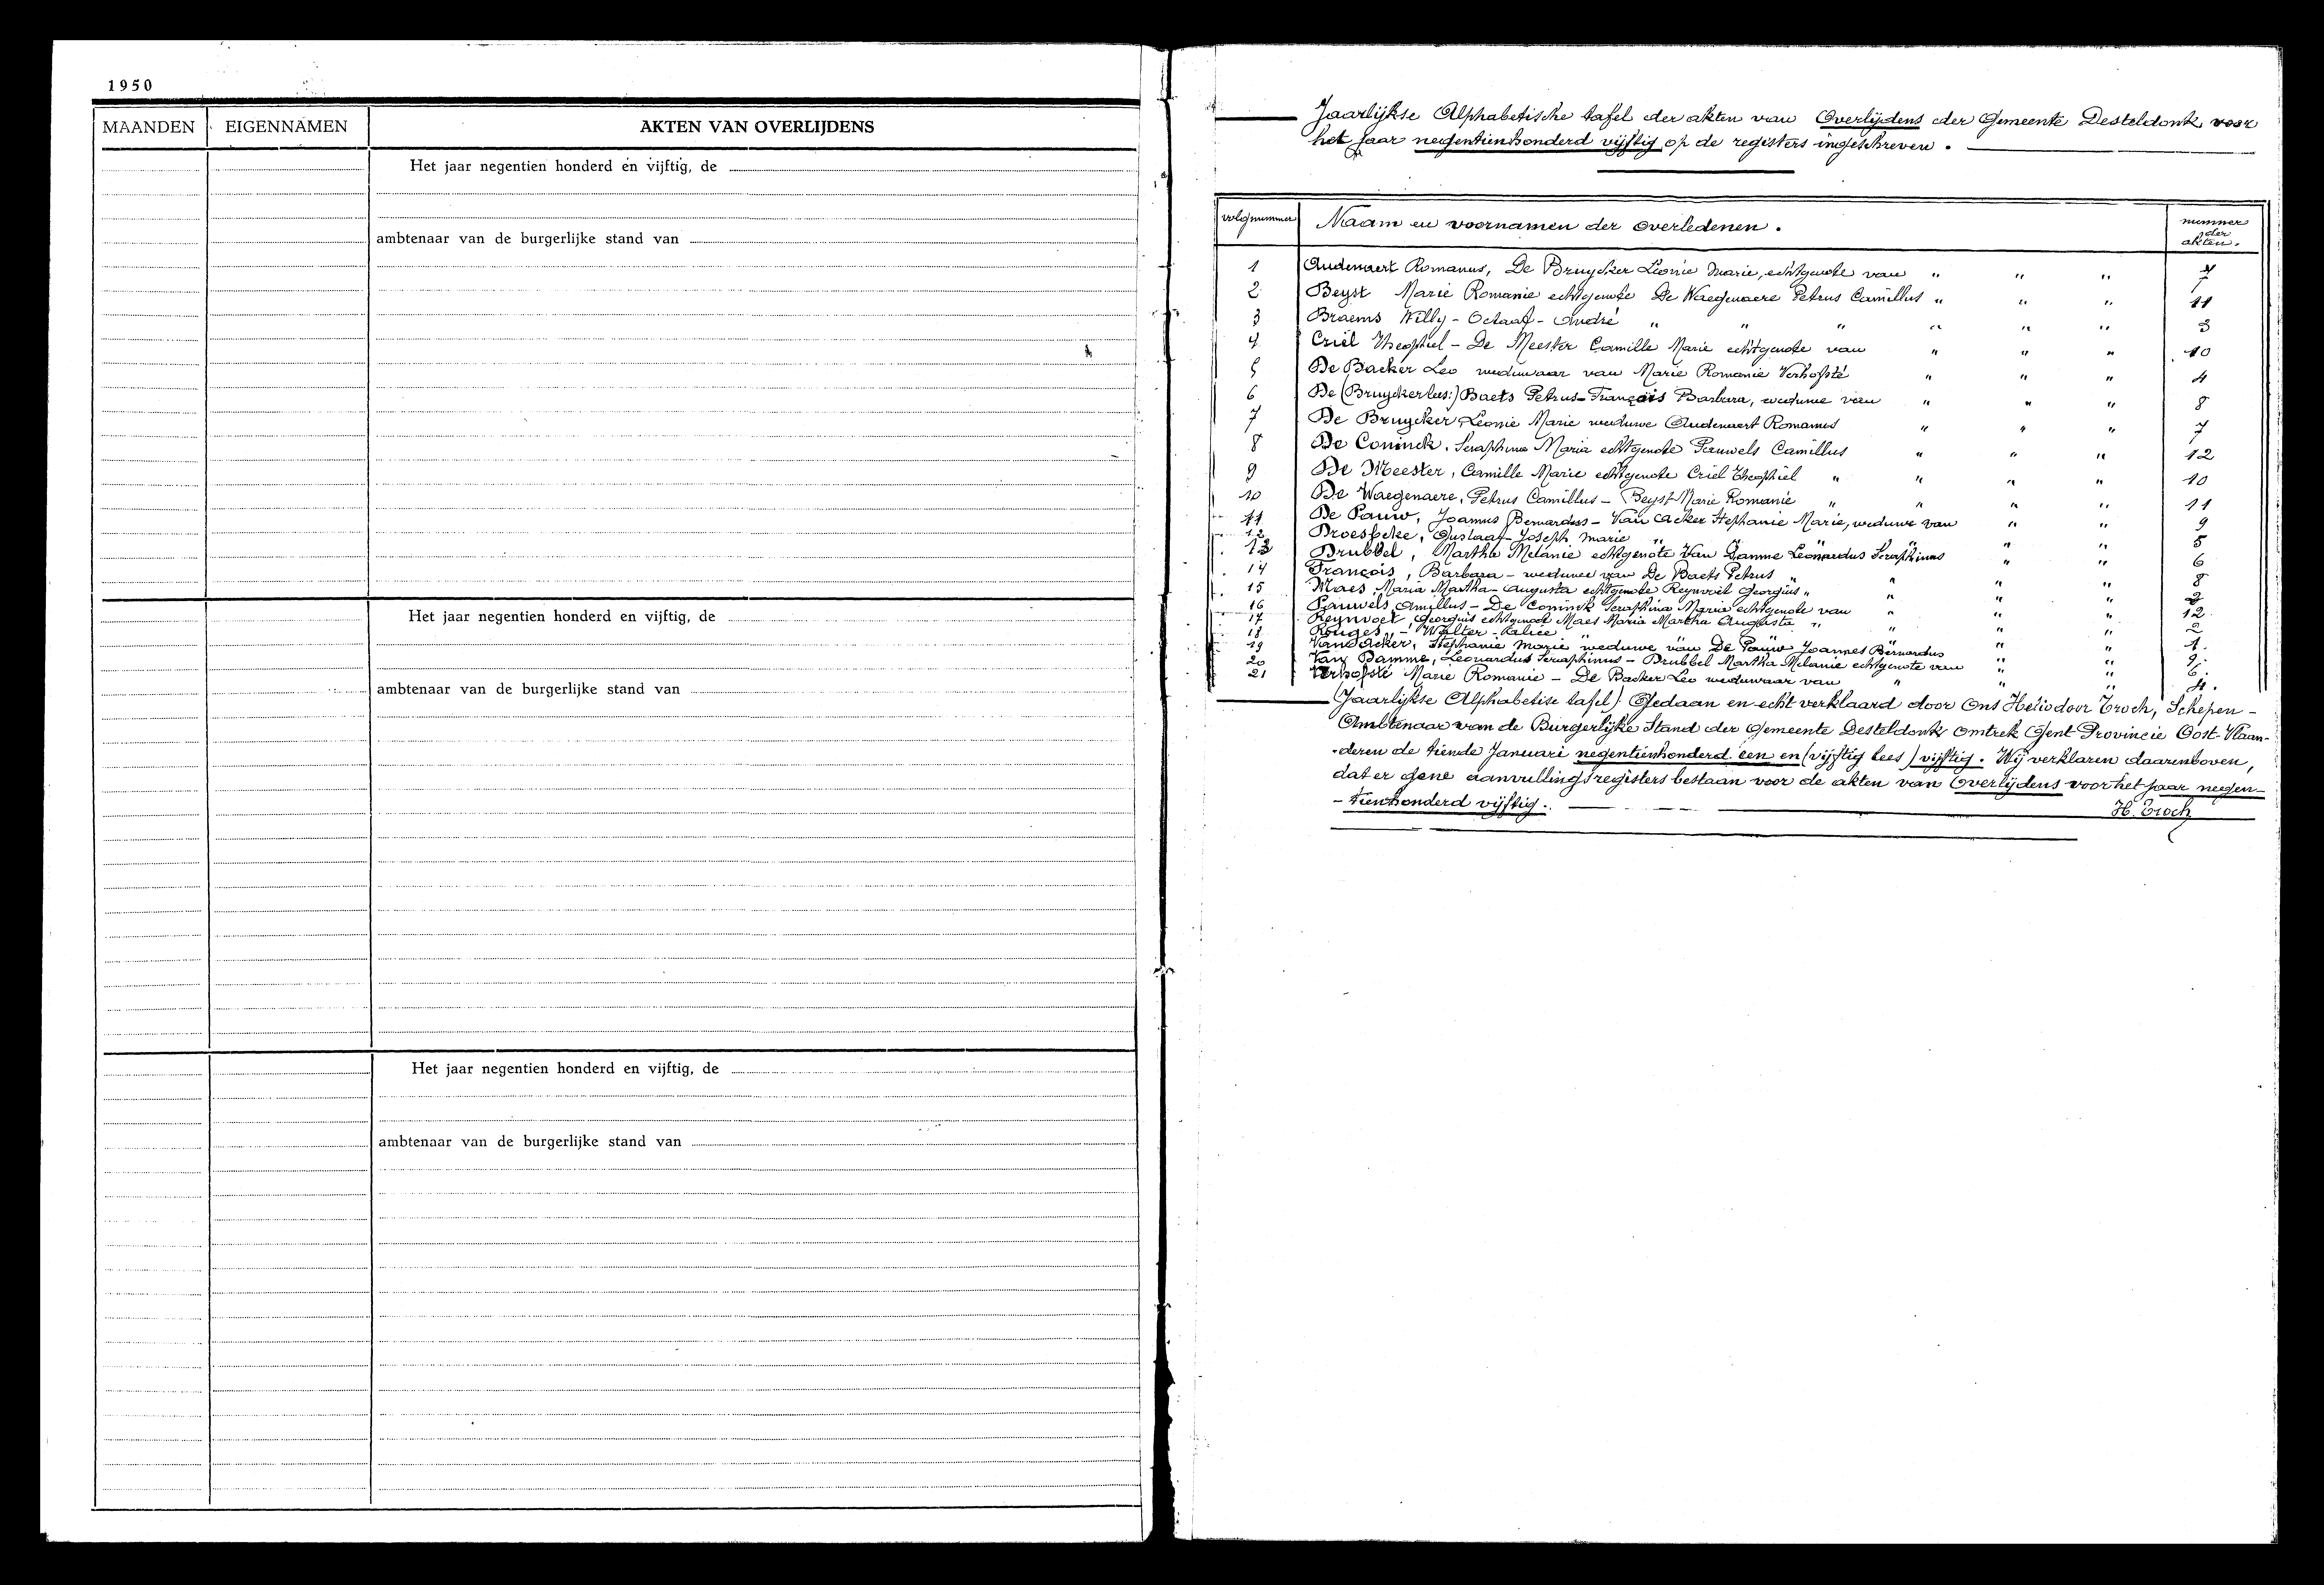 1950
MAANDEN EIGENNAMEN AKTEN VAN OVERLIJDENS
Het jaar negentien honderd en vijftig, de
ambtenaar van de burgerlijke stand van
Het jaar negentien honderd en vijftig, de
ambtenaar van de burgerlijke stand van
Het jaar negentien honderd en vijftig, de
ambtenaar van de burgerlijke stand van
Jaarlijkse Alphabetische tafel der akten van Overlijdens der Gemeente Desteldonk voor
het jaar negentienhonderd vijftig op de registers ingeschreven.
volgnummer Naam en voornamen der overledenen. nummer der akten.
1 Audenaert Romanus, De Bruycker Leonie Marie, echtgenote van " " " 7
2 Beyst Marie Romanie echtgenote De Waegenaere Petrus Camillus " " " 11
3 Braems Willy - Octaaf - André " " " " " " 3
4 Criel Theophiel - De Meester Camille Marie echtgenote van " " " 10
5 De Backer Leo weduwaar van Marie Romanie Verhofsté " " " 4
6 De (Bruycker lees:) Baets Petrus - François Barbara, weduwe van " " " 8
7 De Bruycker Leonie Marie weduwe Audenaert Romanus " " " 7
8 De Coninck, Seraphina Maria echtgenote Pauwels Camillus " " " 12
9 De Meester, Camille Marie echtgenote Criel Theophiel " " " " 10
10 De Waegenaere, Petrus Camillus - Beyst Marie Romanie " " " " 11
11 De Pauw, Joannes Bernardus - Van Acker Stephanie Marie, weduwe van " " 9
12 Droesbeke, Gustaaf - Joseph Marie " " " " " 5
13 Drubbel, Martha Melanie echtgenote Van Damme Leonardus Seraphinus " " 6
14 François, Barbara - weduwe van De Baets Petrus " " " " 8
15 Maes Maria Martha - Augusta echtgenote Reynvoet Georgius " " " " 2
16 Pauwels Camillus - De Coninck Seraphina Maria echtgenote van " " " 12
17 Reynvoet, Georgius echtgenoot Maes Maria Martha Augusta " " " " 2
18 Rouges, - Walter - Alice " " " " " 1.
19 Van Acker, Stephanie Marie weduwe van De Pauw Joannes Bernardus " " 9.
20 Van Damme, Leonardus Seraphinus - Drubbel Martha Melanie echtgenote van " " 6.
21 Verhofsté Marie Romanie - De Backer Leo weduwaar van " " " 4.
(Jaarlijkse Alphabetise tafel) Gedaan en echt verklaard door Ons Heliodoor Troch, Schepen -
Ambtenaar van de Burgerlijke Stand der Gemeente Desteldonk omtrek Gent Provincie Oost-Vlaan-
deren de tiende Januari negentienhonderd een en (vijftig lees) vijftig. Wij verklaren daarenboven,
dat er gene aanvullingsregisters bestaan voor de akten van Overlijdens voor het jaar negen-
- tienhonderd vijftig.
H. Troch